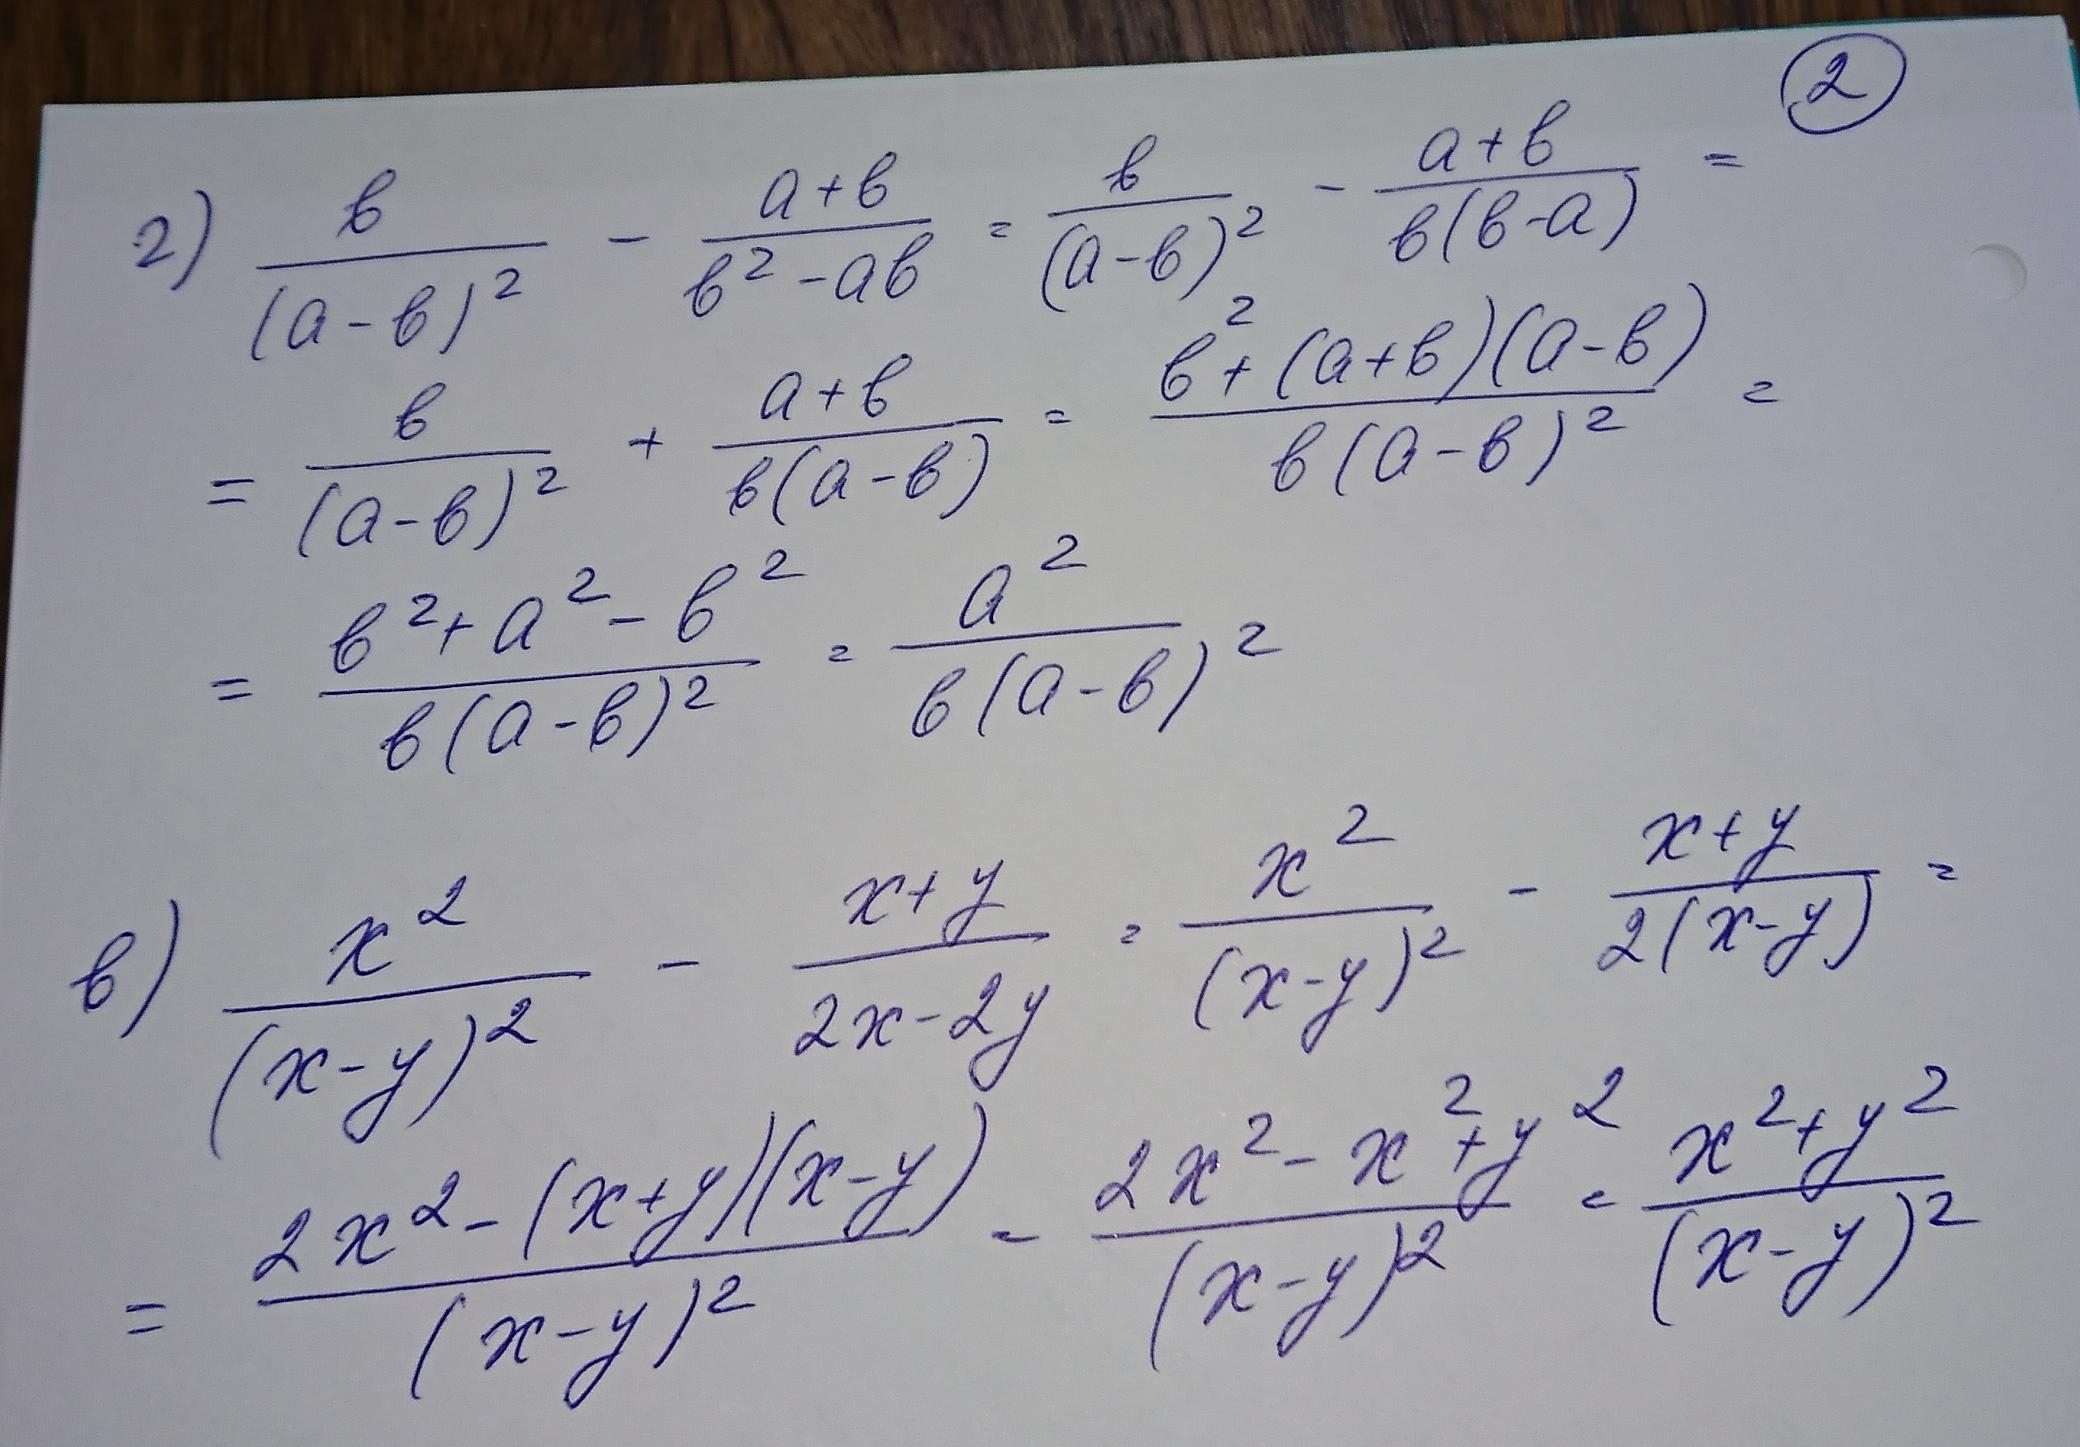 ②
2) b/(a-b)² - (a+b)/(b²-ab) = b/(a-b)² - (a+b)/(b(b-a)) =
= b/(a-b)² + (a+b)/(b(a-b)) = (b²+(a+b)(a-b))/(b(a-b)²) =
= (b²+a²-b²)/(b(a-b)²) = a²/(b(a-b)²)
в) x²/(x-y)² - (x+y)/(2x-2y) = x²/(x-y)² - (x+y)/(2(x-y)) =
= (2x²-(x+y)(x-y))/(x-y)² = (2x²-x²+y²)/(x-y)² = (x²+y²)/(x-y)²